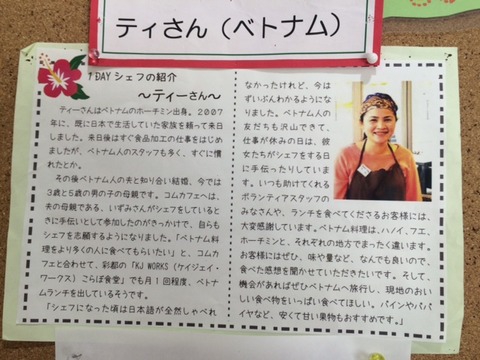 ティさん（ベトナム）
1DAYシェフの紹介
～ティーさん～
ティーさんはベトナムのホーチミン出身。2007
年に、既に日本で生活していた家族を頼って来日
しました。来日後はすぐ食品加工の仕事をはじめ
ましたが、ベトナム人のスタッフも多く、すぐに慣
れたとか。
その後ベトナム人の夫と知り合い結婚、今では
3歳と5歳の男の子の母親です。コムカフェへは、
夫の母親である、いずみさんがシェフをしているとき
に手伝いとして参加したのがきっかけで、自らも
シェフを志願するようになりました。「ベトナム料
理をより多くの人に食べてもらいたい」と、コムカ
フェと合わせて、彩都の「KJ WORKS（ケイジェイ・
ワークス）こらぼ食堂」でも月1回程度、ベトナ
ムランチを出しているそうです。
「シェフになった頃は日本語が全然しゃべれ
なかったけれど、今は
ずいぶんわかるようにな
りました。ベトナム人の
友だちも沢山できて、
仕事が休みの日は、彼
女たちがシェフをする日
に手伝ったりしていま
す。いつも助けてくれる
ボランティアスタッフの
みなさんや、ランチを食べてくださるお客様には、
大変感謝しています。ベトナム料理は、ハノイ、フエ、
ホーチミンと、それぞれの地方でまったく違います。
お客様にはぜひ、味や量など、なんでも良いので、
食べた感想を聞かせていただきたいです。そして、
機会があればぜひベトナムへ旅行し、現地のおい
しい食べ物をいっぱい食べてほしい。パインやパパ
イヤなど、安くて甘い果物もおすすめです。」